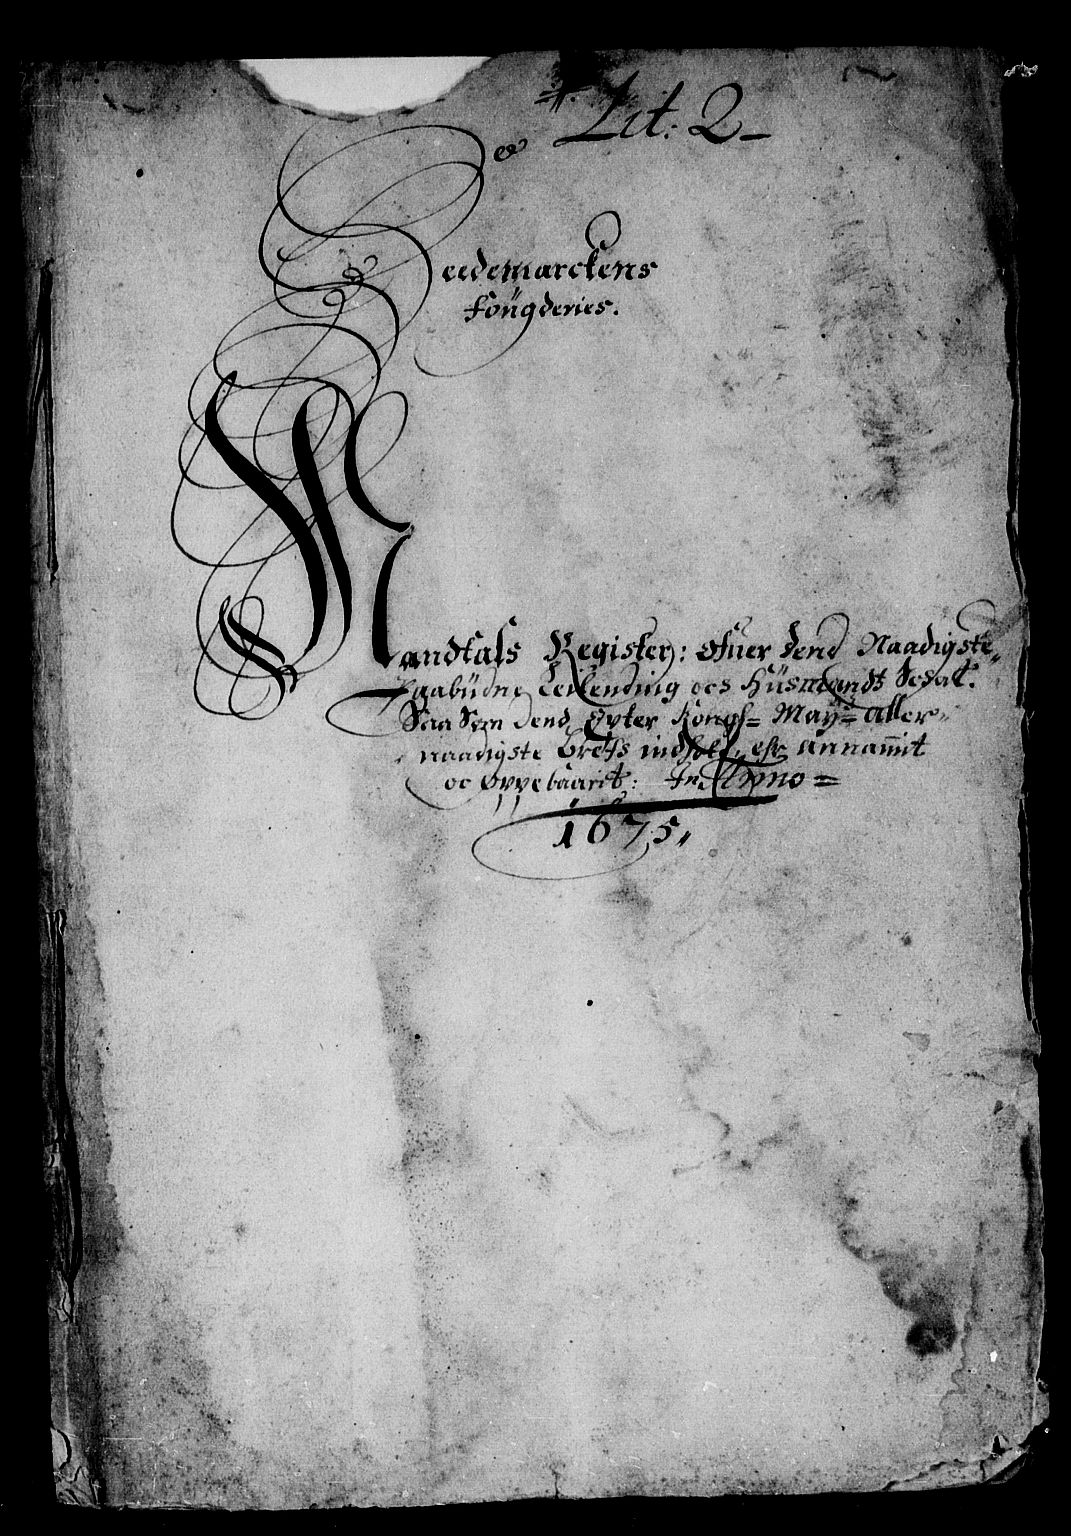 Lit: Q
Heedemarckens
Fougderies.
Mandtals Register: Ofuer dend Naadigste
Paabudne Leilending och Husmandt Schat.
Saa Som dend Epter Kongl= May= Aller-
naadigste brefs indhold, er annammit
oc Oppebaarit: In Anno=
1675.